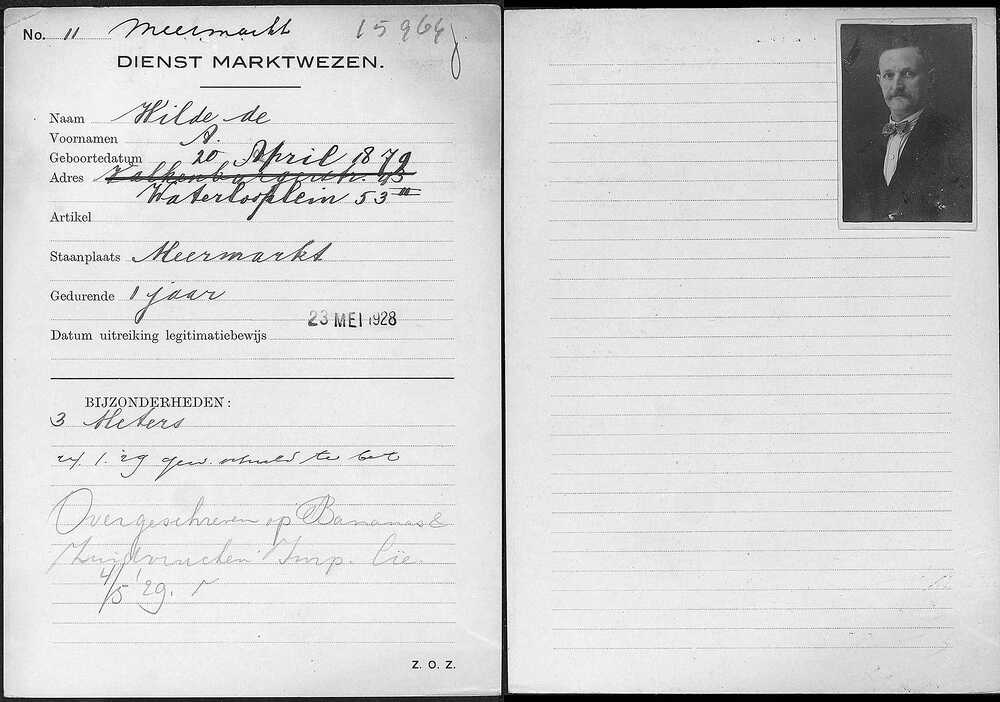 No. 11 Meermarkt 15964
DIENST MARKTWEZEN.
Naam Wilde de
Voornamen A.
Geboortedatum 20 April 1879
Adres Valkenburgerstr. 43
Waterlooplein 53 III
Artikel
Staanplaats Meermarkt
Gedurende 1 jaar
23 MEI 1928
Datum uitreiking legitimatiebewijs
BIJZONDERHEDEN:
3 Meters
24.1.29 gew. schuld te bet
Overgeschreven op Bananas &
Zuidvruchten Imp. Cie.
4/5 '29.
Z. O. Z.